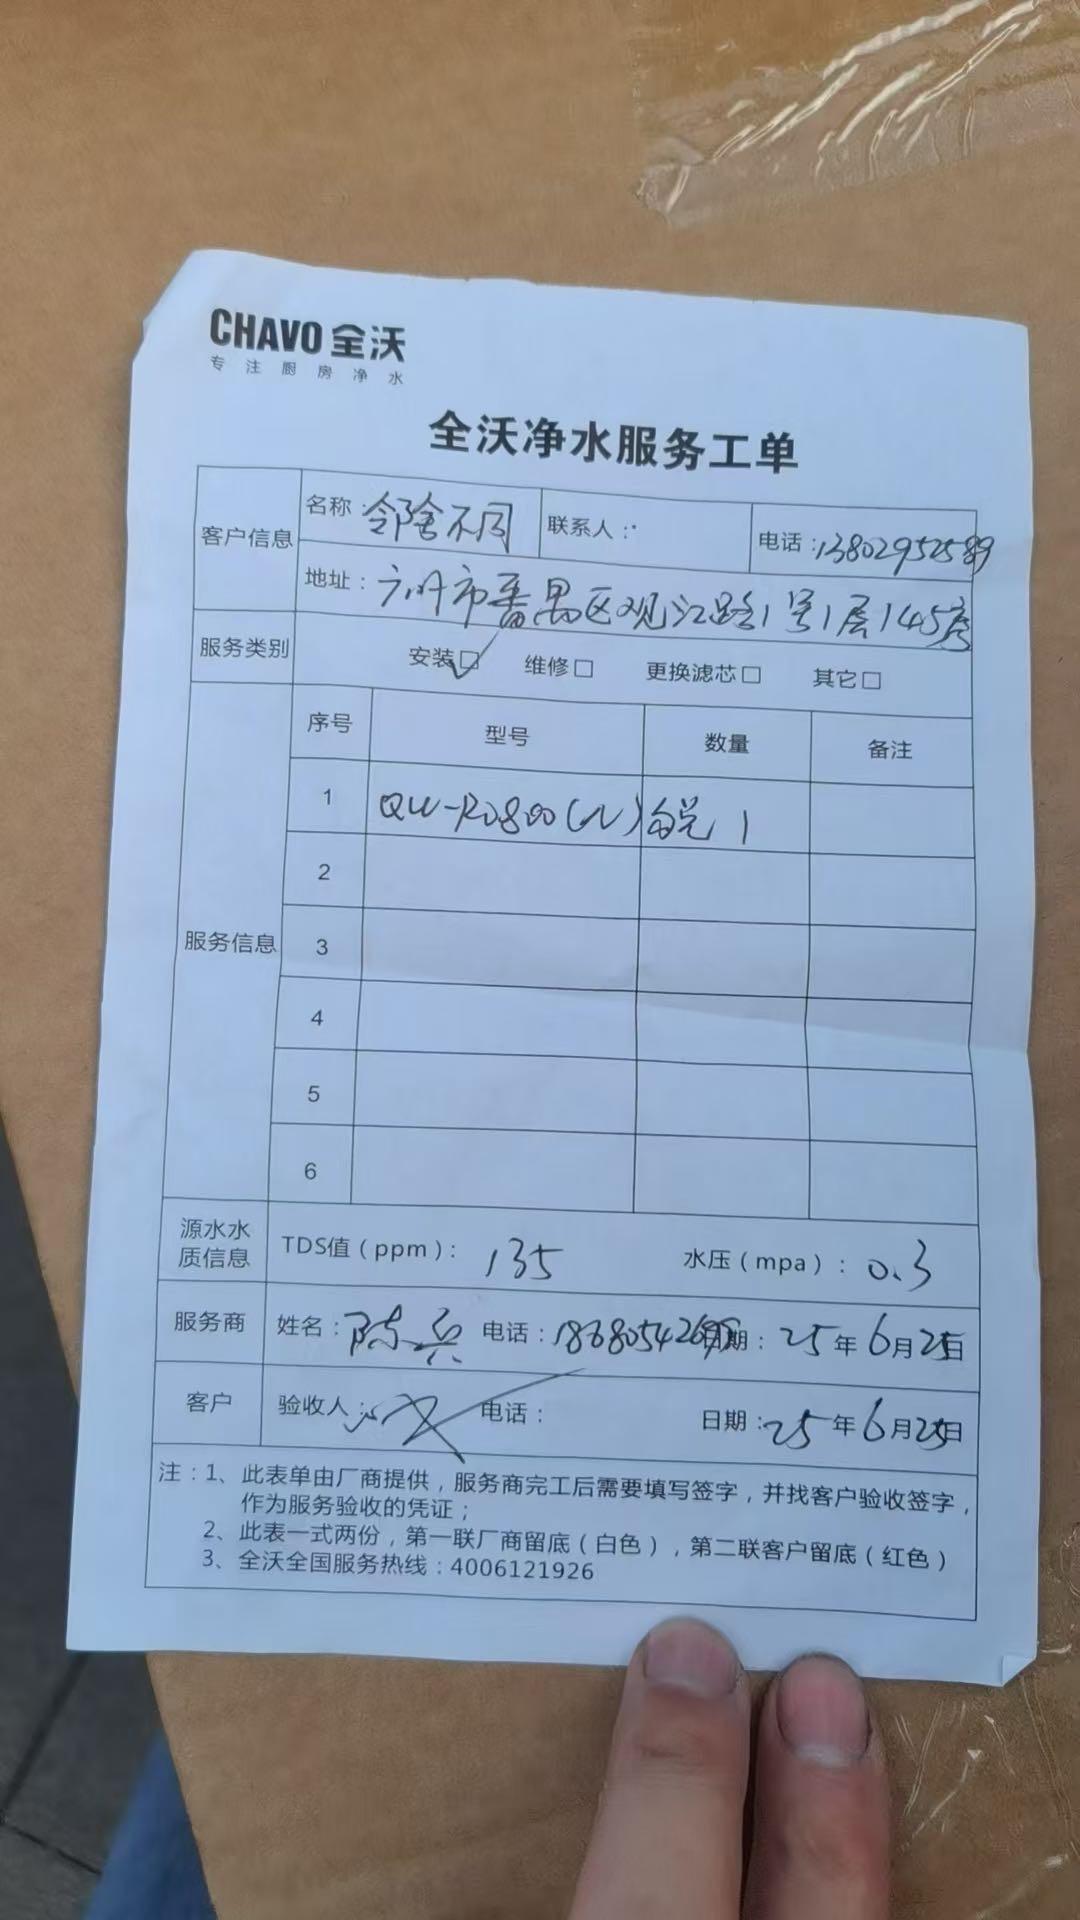 CHAVO 全沃
专注厨房净水
全沃净水服务工单
客户信息
名称：邻舍不同 联系人： 电话：13802952589
地址：广州市番禺区观江路1号1层145房
服务类别 安装☑ 维修□ 更换滤芯□ 其它□
服务信息
序号 型号 数量 备注
1 QW-RO800(N) 1
2
3
4
5
6
源水水质信息 TDS值（ppm）： 135 水压（mpa）：0.3
服务商 姓名：陈兵 电话：186805426 日期：25年6月25日
客户 验收人： 电话： 日期：25年6月25日
注：1、此表单由厂商提供，服务商完工后需要填写签字，并找客户验收签字，
作为服务验收的凭证；
2、此表一式两份，第一联厂商留底（白色），第二联客户留底（红色）
3、全沃全国服务热线：4006121926